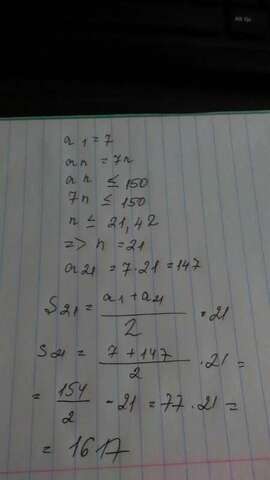 a1 = 7
an = 7n
an ≤ 150
7n ≤ 150
n ≤ 21,42
=> n = 21
a21 = 7·21 = 147
S21 = (a1 + a21)/2 · 21
S21 = (7 + 147)/2 · 21 =
= 154/2 · 21 = 77 · 21 =
= 1617